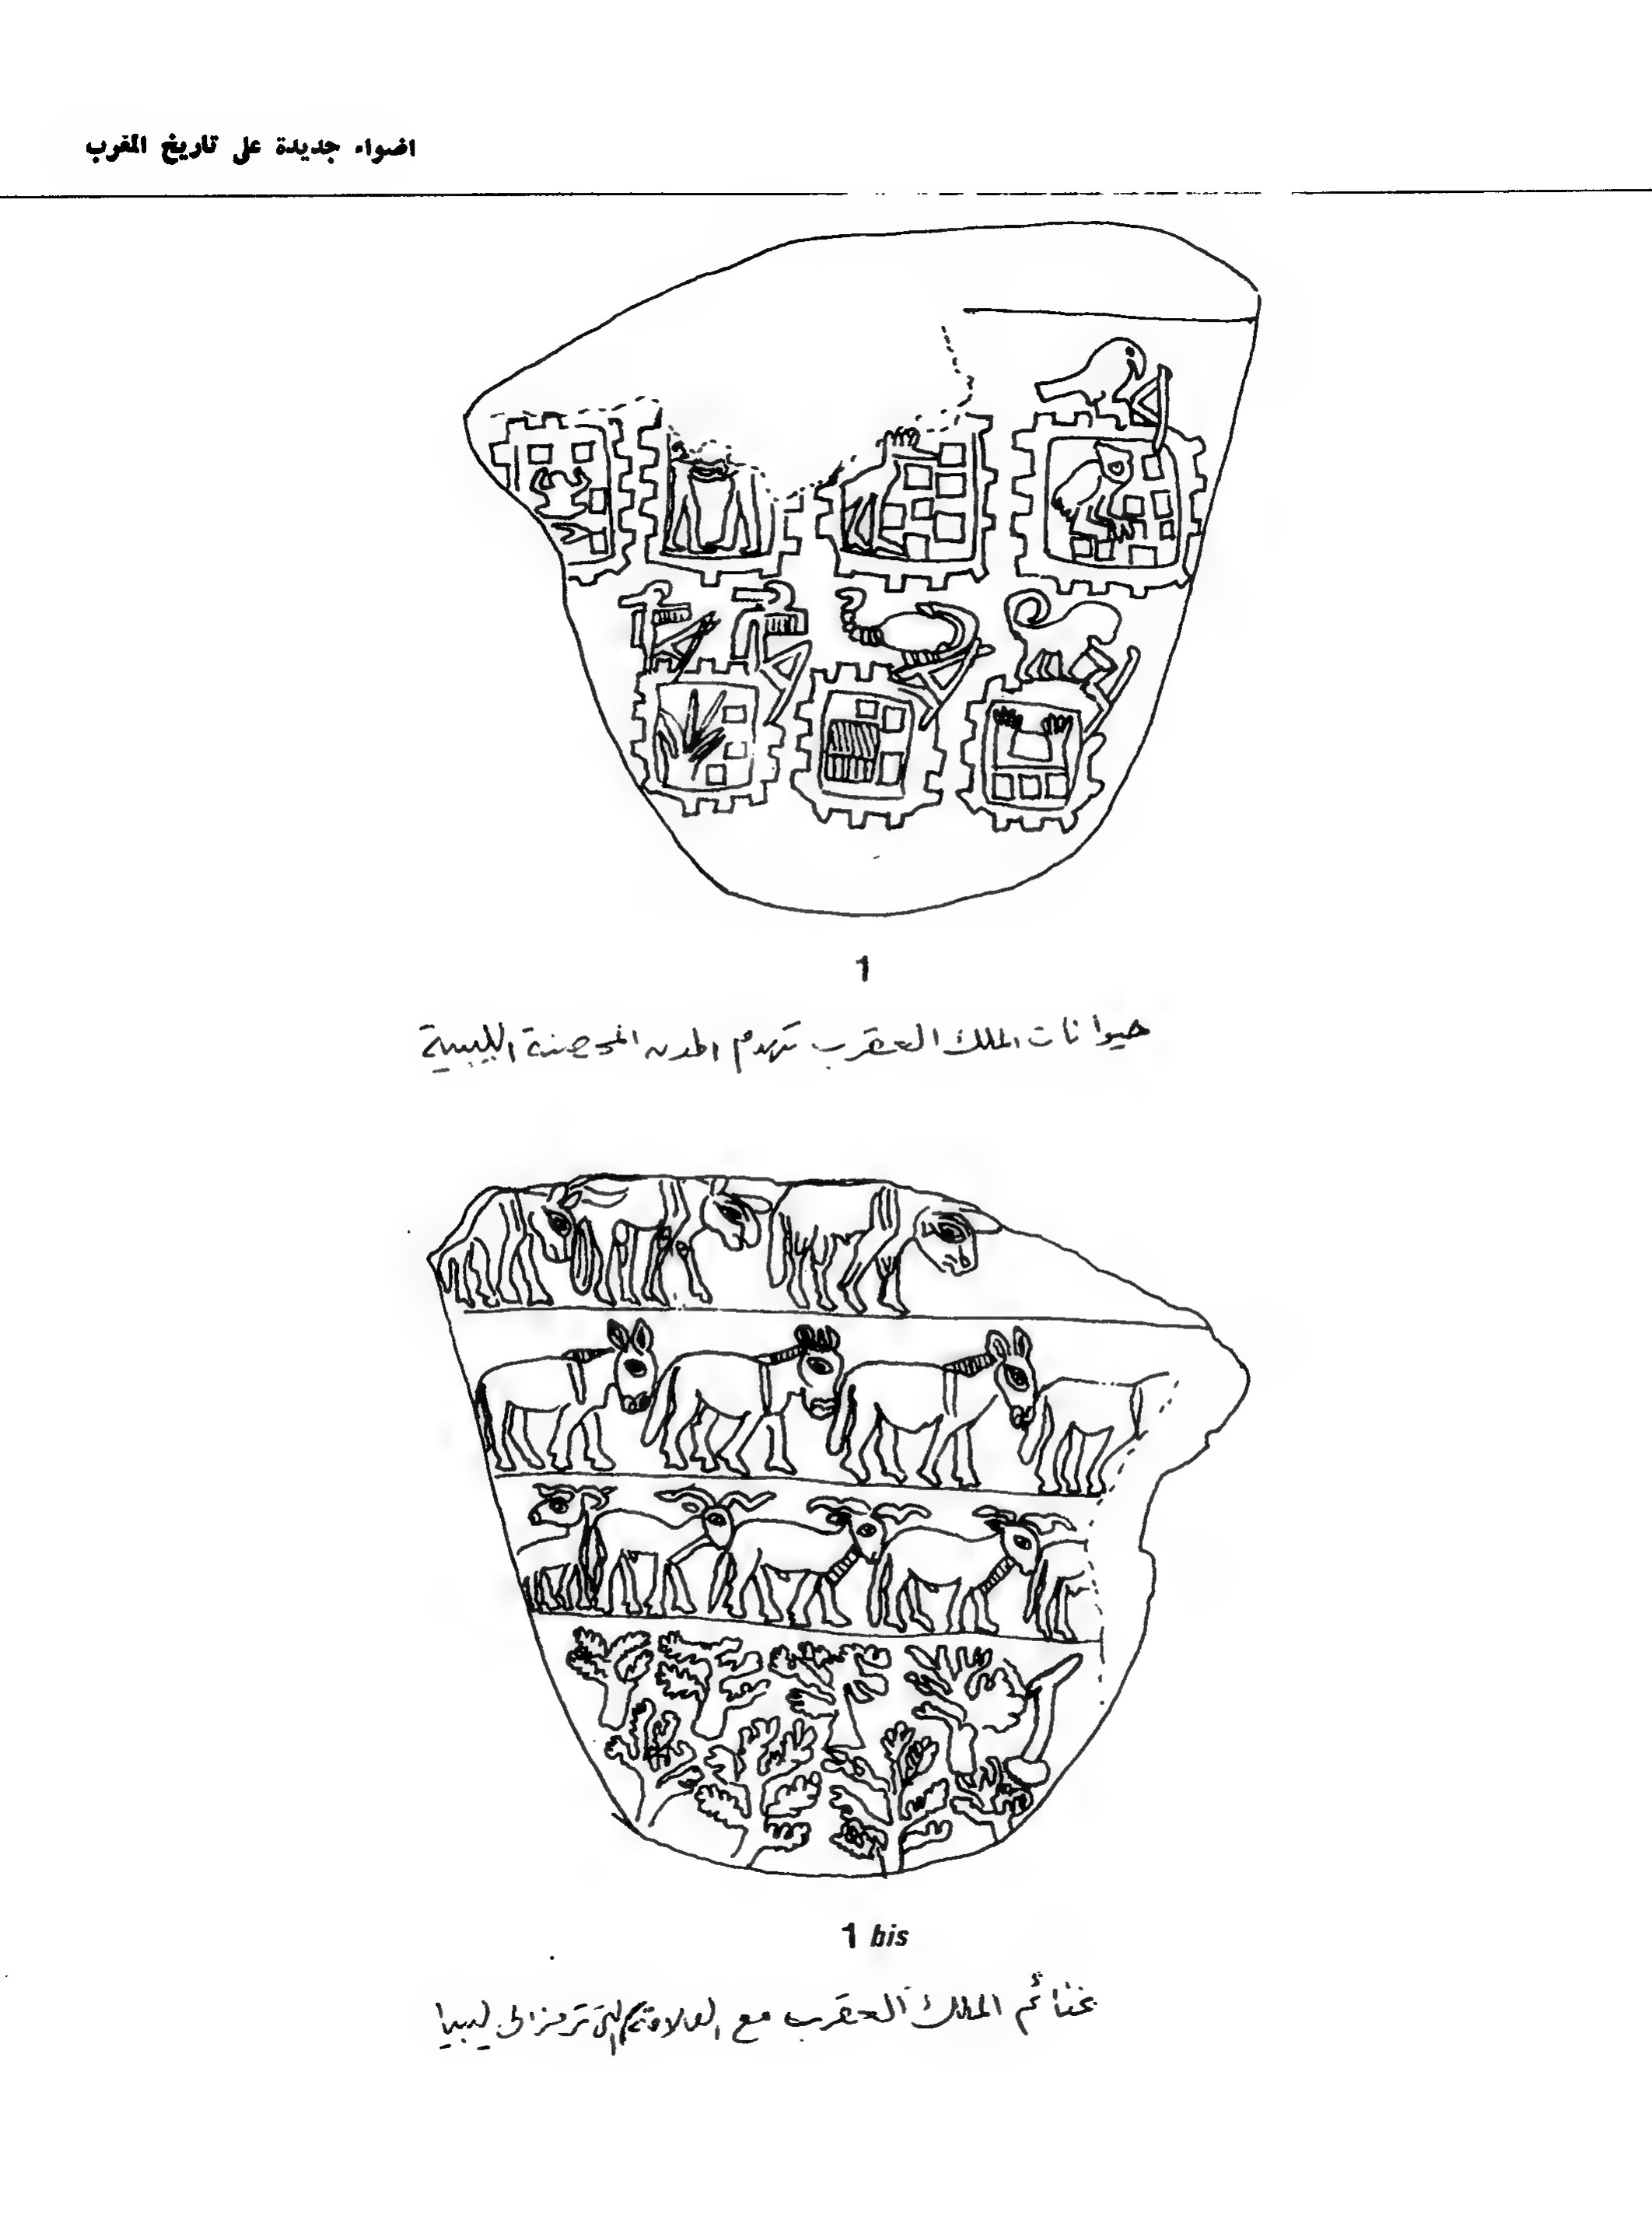 اضواء جديدة على تاريخ المغرب
1
حيوانات الملك العقرب تهدم المدن المحصنة الليبية
1 bis
غنائم الملك العقرب مع العلامة التي ترمز الى ليبيا